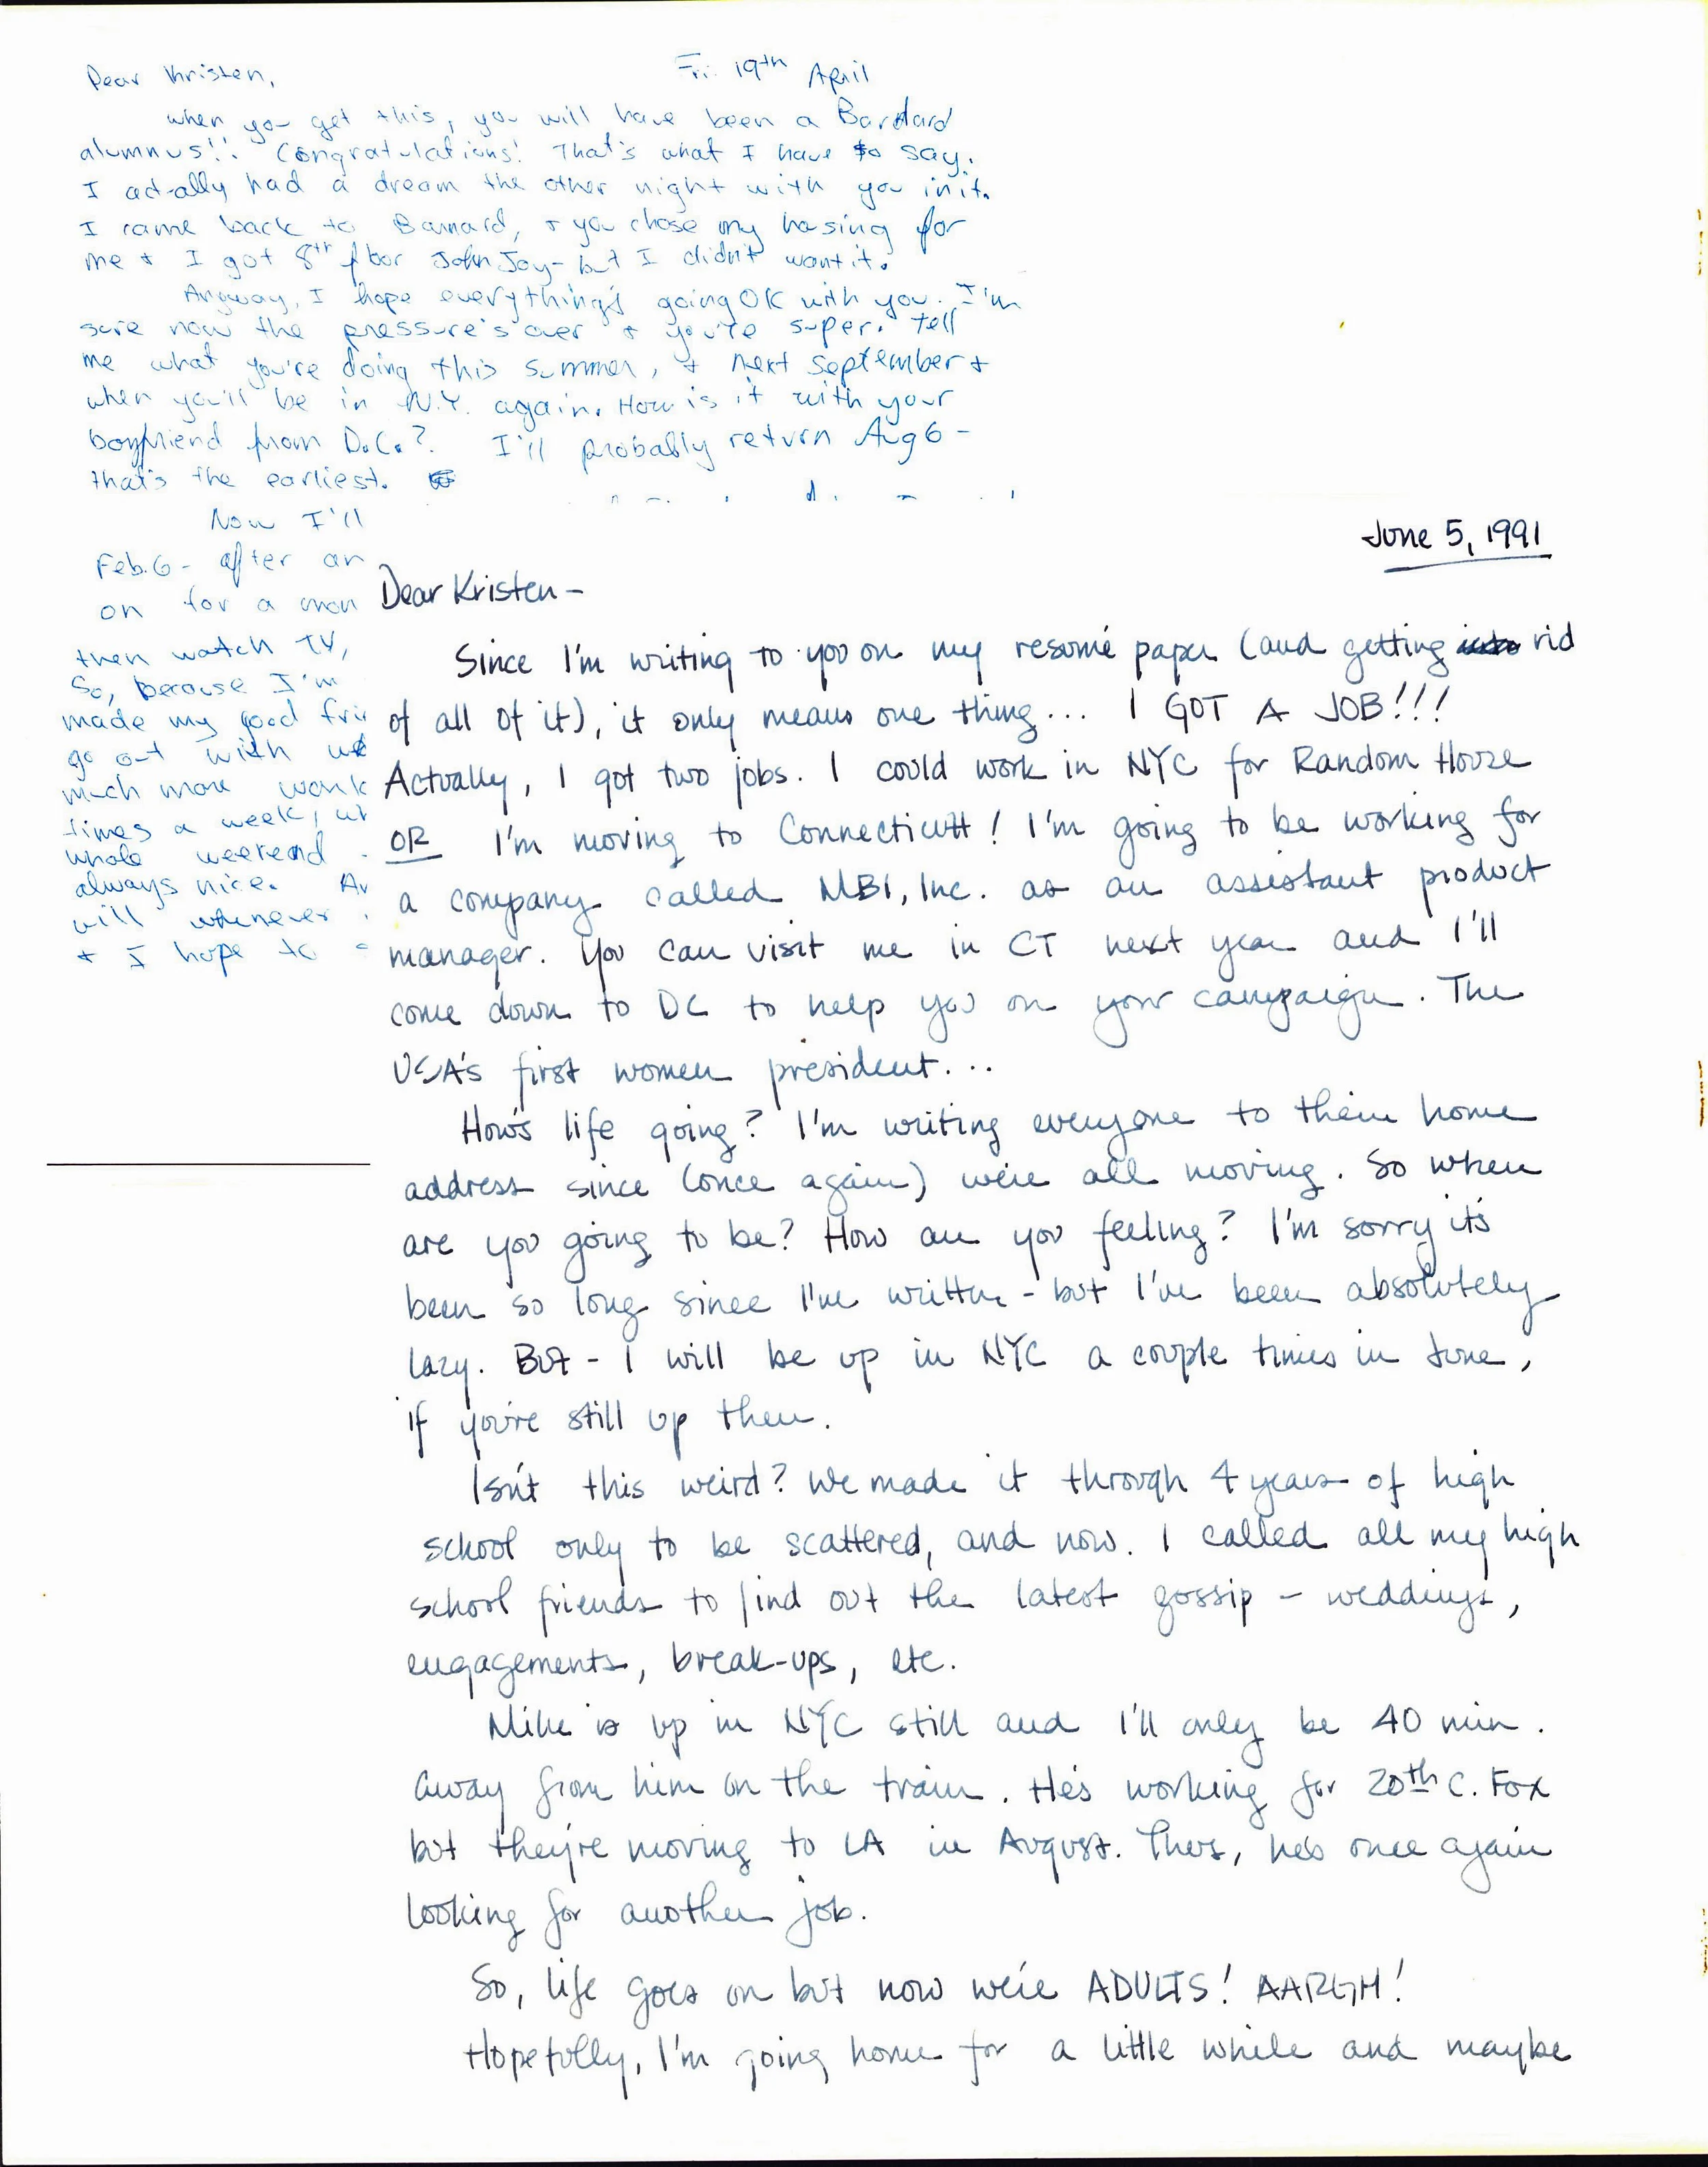 Dear Kristen,
Fri. 19th April
when you get this, you will have been a Barnard
alumnus!! Congratulations! That's what I have to say.
I actually had a dream the other night with you in it.
I came back to Barnard, + you chose my housing for
me + I got 8th floor John Jay - but I didn't want it.
Anyway, I hope everything's going OK with you. I'm
sure now the pressure's over + you're super. Tell
me what you're doing this summer, + next September +
when you'll be in N.Y. again. How is it with your
boyfriend from D.C.? I'll probably return Aug 6 -
that's the earliest.
Now I'll
Feb. 6 - after an
on for a mon
then watch TV,
So, because I'm
made my good frie
go out with
much more
times a week, wh
whole weekend
always nice.
will whenever
+ I hope to
June 5, 1991
Dear Kristen -
Since I'm writing to you on my resumé paper (and getting rid
of all of it), it only means one thing... I GOT A JOB!!!
Actually, I got two jobs. I could work in NYC for Random House
OR I'm moving to Connecticutt! I'm going to be working for
a company called MBI, Inc. as an assistant product
manager. You can visit me in CT next year and I'll
come down to DC to help you on your campaign. The
USA's first women president...
How's life going? I'm writing everyone to their home
address since (once again) we're all moving. So where
are you going to be? How are you feeling? I'm sorry it's
been so long since I've written - but I've been absolutely
lazy. But - I will be up in NYC a couple times in June,
if you're still up there.
Isn't this weird? We made it through 4 years of high
school only to be scattered, and now. I called all my high
school friends to find out the latest gossip - weddings,
engagements, break-ups, etc.
Mike is up in NYC still and I'll only be 40 min.
away from him on the train. He's working for 20th C. Fox
but they're moving to LA in August. Thus, he's once again
looking for another job.
So, life goes on but now we're ADULTS! AARGH!
Hopefully, I'm going home for a little while and maybe